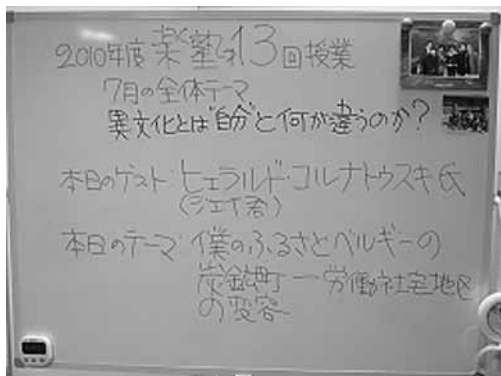 2010年度 楽塾 第13回授業
7月の全体テーマ
異文化とは"自分"と何が違うのか?
本日のゲスト ヒェラルド・コルナトウスキ氏
(ジェイ君)
本日のテーマ 僕のふるさとベルギーの
炭鉱町ー労働社宅地区
の変容